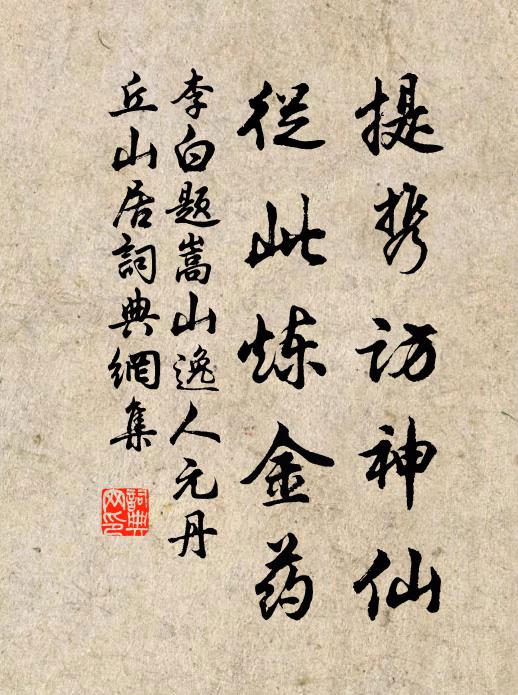 提携访神仙
從此炼金药
李白题嵩山逸人元丹
丘山居詞典網集
詞典
网印